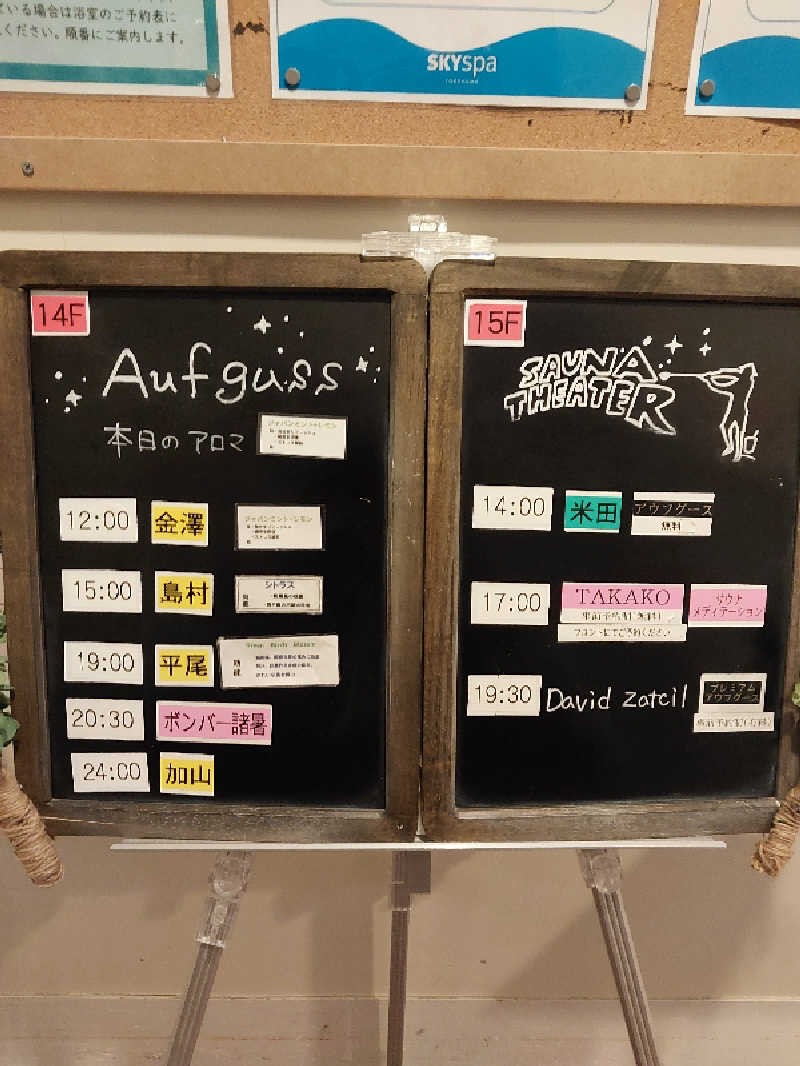 いる場合は浴室のご予約表に
ください。順番にご案内します。
SKYspa
YOKOHAMA
14F
Aufguss
本日のアロマ
ジャパンミント・レモン
12:00 金澤 ジャパンミント・レモン
15:00 島村 シトラス
19:00 平尾
効能
20:30 ボンバー諸暑
24:00 加山
15F
SAUNA
THEATER
14:00 米田 アウフグース
無料
17:00 TAKAKO サウナ
メディテーション
フロントにてご予約ください
19:30 David zatcil プレミアム
アウフグース